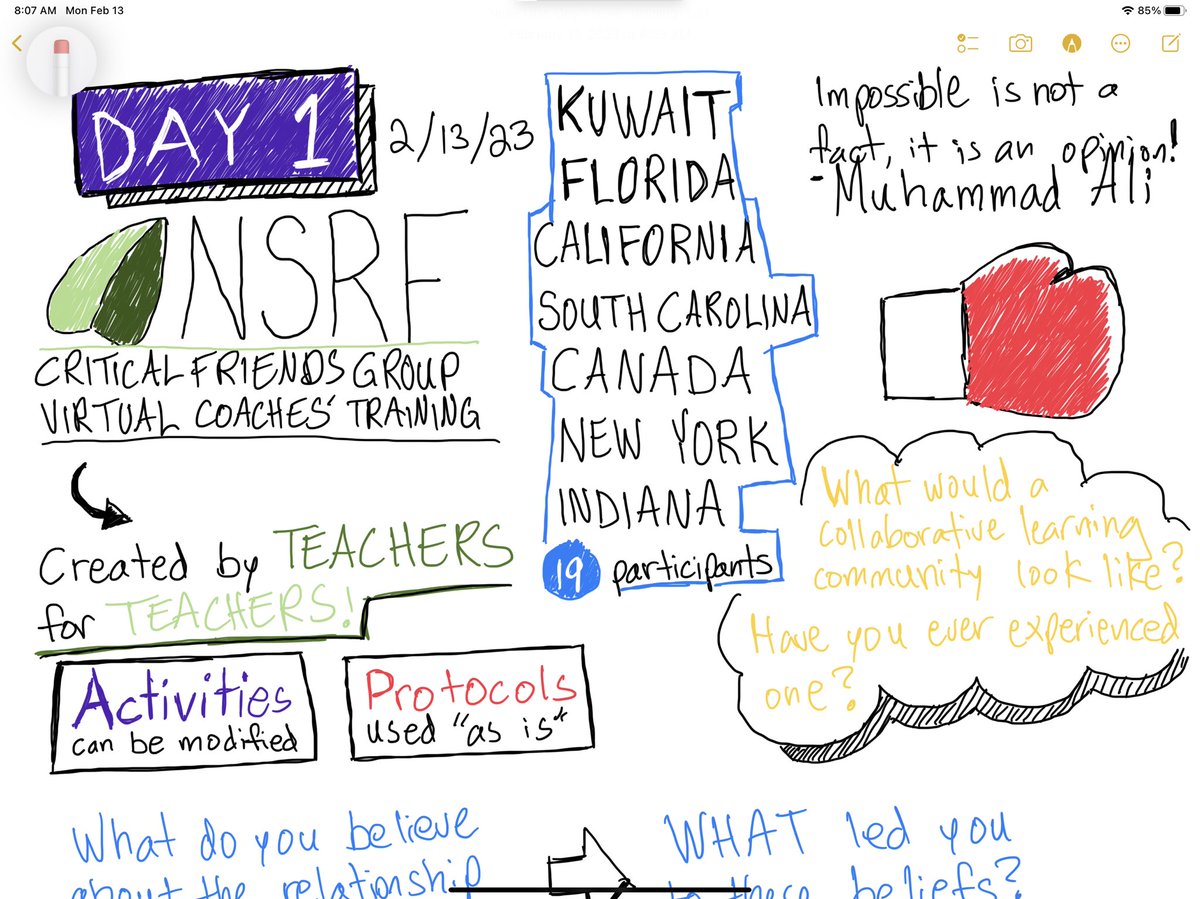 8:07 AM Mon Feb 13
85%
DAY 1
2/13/23
NSRF
CRITICAL FRIENDS GROUP
VIRTUAL COACHES' TRAINING
Created by TEACHERS
for TEACHERS!
Activities
can be modified
Protocols
used "as is"
KUWAIT
FLORIDA
CALIFORNIA
SOUTH CAROLINA
CANADA
NEW YORK
INDIANA
19 participants
Impossible is not a
fact, it is an opinion!
- Muhammad Ali
What would a
collaborative learning
community look like?
Have you ever experienced
one?
What do you believe
about the relationship
WHAT led you
to these beliefs?